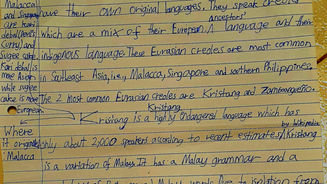 Malacca
and Singapore
are known
debal (Devil's
Curry) and
Sugee cake.
is more Asian
while sugee
cake is more
European
Where
it originated
Malacca
have their own original languages. They speak creole
which are a mix of their European ancestors' language and their
indigenous language. These Eurasian creoles are most common
in Southeast Asia, i.e., Malacca, Singapore and southern Philippines.
The 2 most common Eurasian creoles are Kristang and Zamboangueño.
Kristang
Kristang is a highly endangered language which has
only about 2,000 speakers according to recent estimates by Wikipedia. Kristang
is a variation of Malay. It has a Malay grammar and a